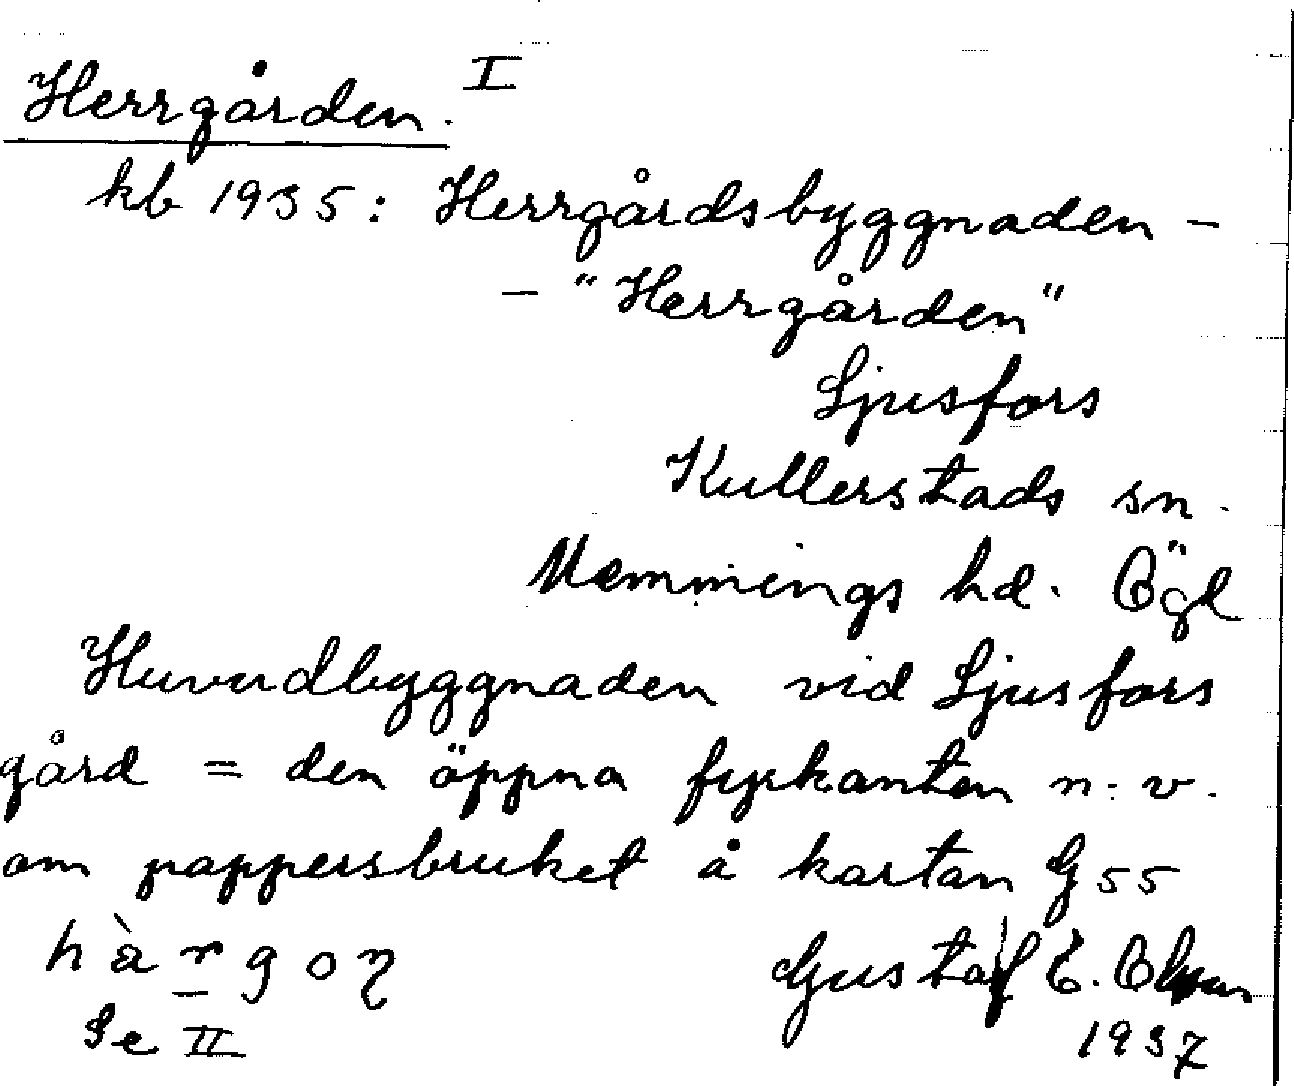 Herrgården. I
kb 1935: Herrgårdsbyggnaden -
- "Herrgården"
Ljusfors
Kullerstads sn.
Memmings hd. Ögl
Huvudbyggnaden vid Ljusfors
gård = den öppna fyrkanten n. v.
om pappersbruket å kartan G 55
h à r g o ɳ
Gustaf E. Olson
Se II
1937